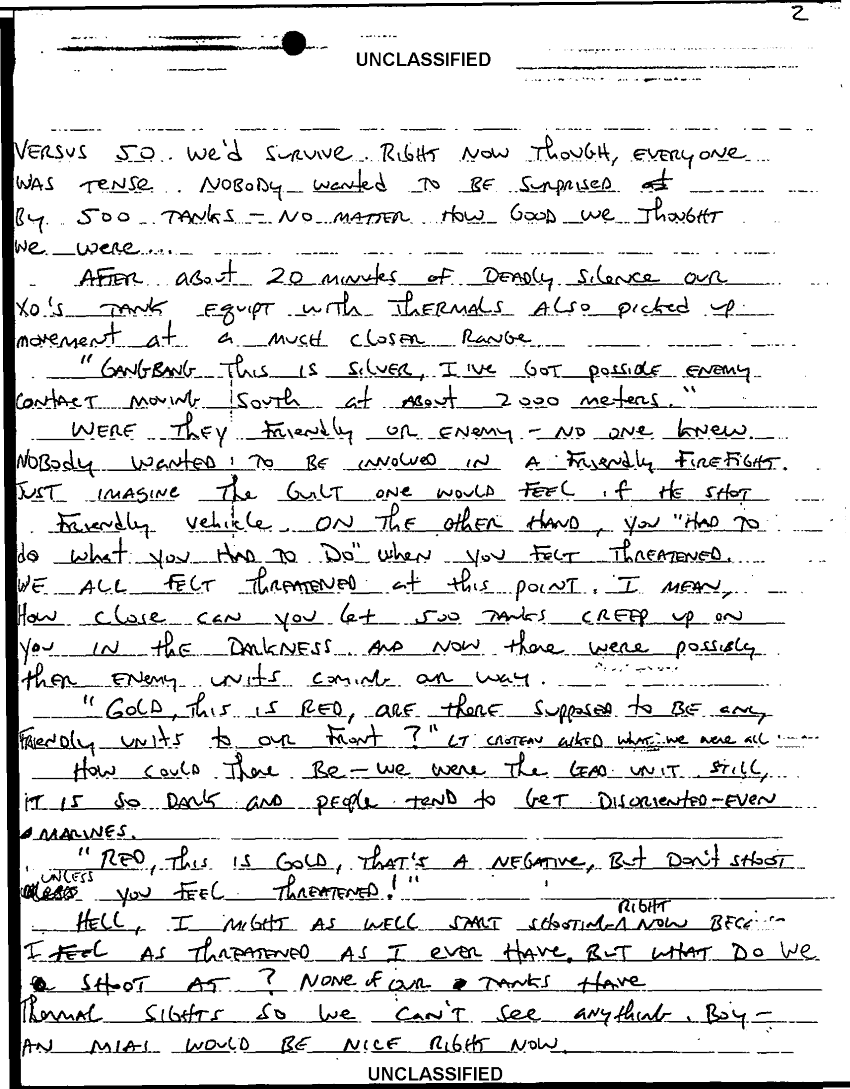 2
UNCLASSIFIED
VERSUS 50. We'd SURVIVE. RIGHT NOW THOUGH, EVERYONE
WAS TENSE. NOBODY wanted TO BE SURPRISED
By 500 TANKS - NO MATTER HOW GOOD WE THOUGHT
We were...
AFTER about 20 minutes of DEADLY SILENCE our
XO'S TANK EQUIPT with THERMALS ALSO picked up
movement at a MUCH CLOSER RANGE
"GANGBANG THIS IS SILVER, I I'VE GOT POSSIBLE ENEMY
CONTACT MOVING SOUTH at ABOUT 2000 meters."
WERE THEY Friendly OR ENEMY - NO ONE KNEW.
NOBODY WANTED TO BE INVOLVED IN A Friendly FIREFIGHT.
JUST IMAGINE THE GUILT ONE WOULD FEEL if HE SHOT
Friendly vehicle. ON THE OTHER HAND, you "HAD TO
do what you HAD TO DO" when you FELT THREATENED.
WE ALL FELT THREATENED at this POINT. I MEAN,
How close can you let 500 TANKS CREEP UP ON
You IN the DARKNESS AND NOW there were possibly
then ENEMY UNITS COMING our WAY.
"GOLD, This IS RED, ARE tHERE SUPPOSED to BE any
FRIENDLY UNITS to OUR FRONT?" LT CROTEAU ASKED WHAT we were all
How COULD THERE BE - WE WERE THE LEAD UNIT STILL,
IT IS SO DARK AND people tEND to GET DISORIENTED - EVEN
MARINES.
"RED, this IS GOLD, THAT'S A NEGATIVE, BUT DON'T SHOOT
UNLESS you FEEL THREATENED!"
HELL, I MIGHT AS WELL START SHOOTING RIGHT NOW BEC
I FEEL AS THREATENED AS I EVER HAVE. BUT WHAT DO WE
SHOOT AT? NONE of OUR TANKS HAVE
THERMAL SIGHTS SO WE CAN'T SEE anything. Boy -
AN M1A1 WOULD BE NICE RIGHT NOW.
UNCLASSIFIED